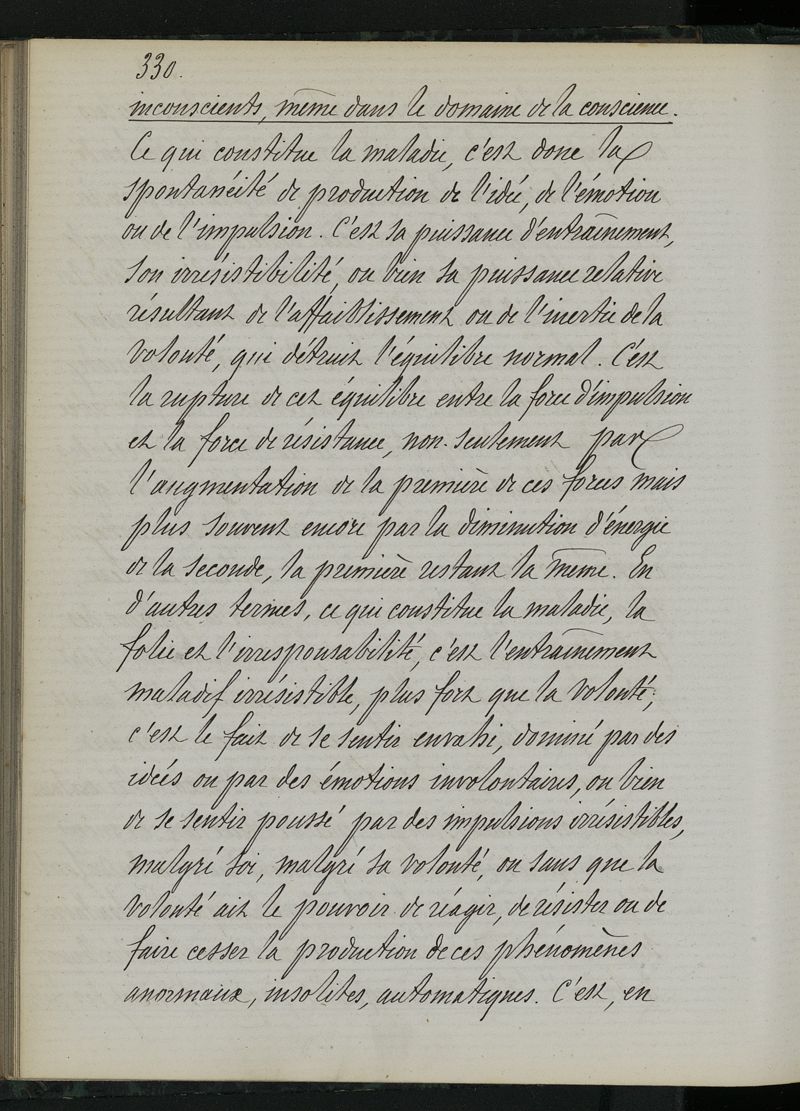 330.
inconscients, même dans le domaine de la conscience.
Ce qui constitue la maladie, c'est donc la
spontanéité de production de l'idée, de l'émotion
ou de l'impulsion. C'est sa puissance d'entraînement,
son irrésistibilité, ou bien sa puissance relative
résultant de l'affaiblissement ou de l'inertie de la
volonté, qui détruit l'équilibre normal. C'est
la rupture de cet équilibre entre la force d'impulsion
et la force de résistance, non-seulement par
l'augmentation de la première de ces forces mais
plus souvent encore par la diminution d'énergie
de la seconde, la première restant la même. En
d'autres termes, ce qui constitue la maladie, la
folie et l'irresponsabilité, c'est l'entraînement
maladif irrésistible, plus fort que la volonté;
c'est le fait de se sentir envahi, dominé par des
idées ou par des émotions involontaires, ou bien
de se sentir poussé par des impulsions irrésistibles,
malgré soi, malgré sa volonté, ou sans que la
volonté ait le pouvoir de réagir, de résister ou de
faire cesser la production de ces phénomènes
anormaux, insolites, automatiques. C'est, en